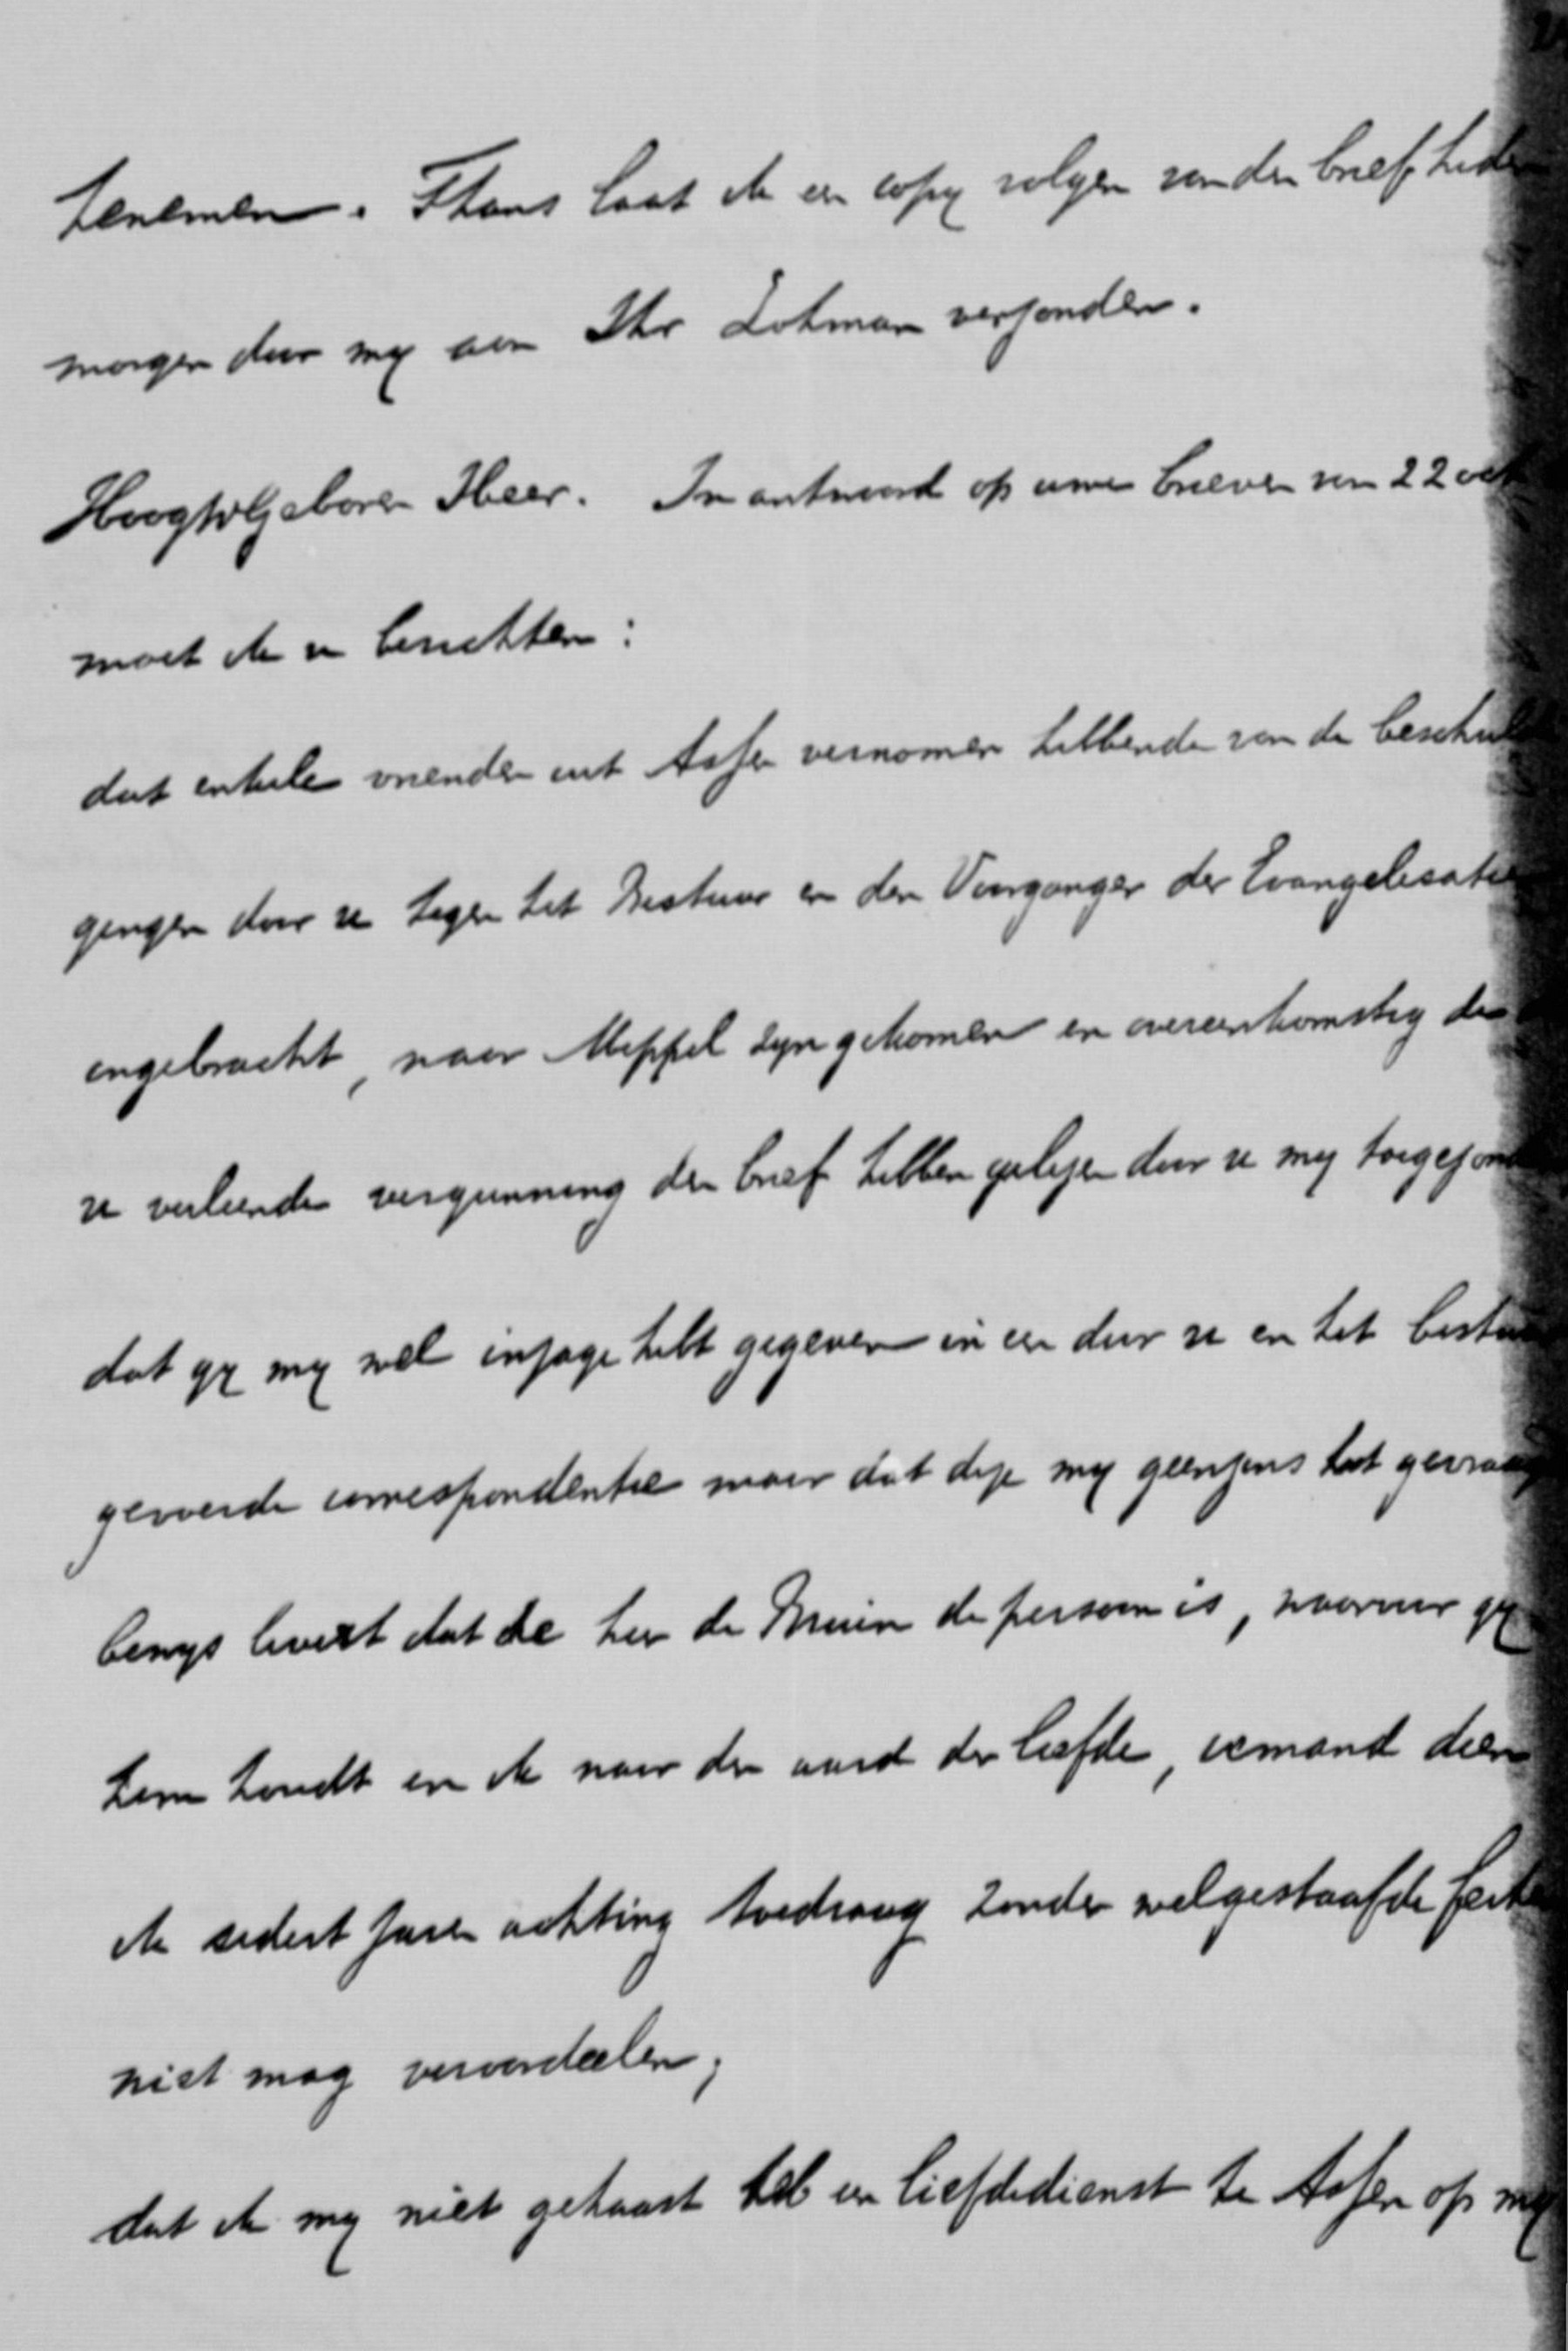 te nemen. Thans laat ik een copy volgen van den brief heden
morgen door my aan Jhr Lohman verzonden.
HoogWelgeboren Heer. In antwoord op uwe brieven van 22 oct
moet ik u berichten:
dat enkele vrienden uit Assen vernomen hebbende van de beschul
gingen door u tegen het Bestuur en den Voorganger der Evangelisatie
ingebracht, naar Meppel zyn gekomen en overeenkomstig de
u verleende vergunning den brief hebben gelezen door u my toegezon
dat gy my wel inzage hebt gegeven in een door u en het bestuur
gevoerde correspondentie maar dat deze my geenszins het gevraag
bewys levert dat de heer de Bruin de persoon is, waarvoor gy
hem houdt en ik naar den aard der liefde, iemand dien
ik sedert jaren achting toedraag zonder welgestaafde feite
niet mag veroordeelen;
dat ik my niet gehaast heb een liefdedienst te Assen op my